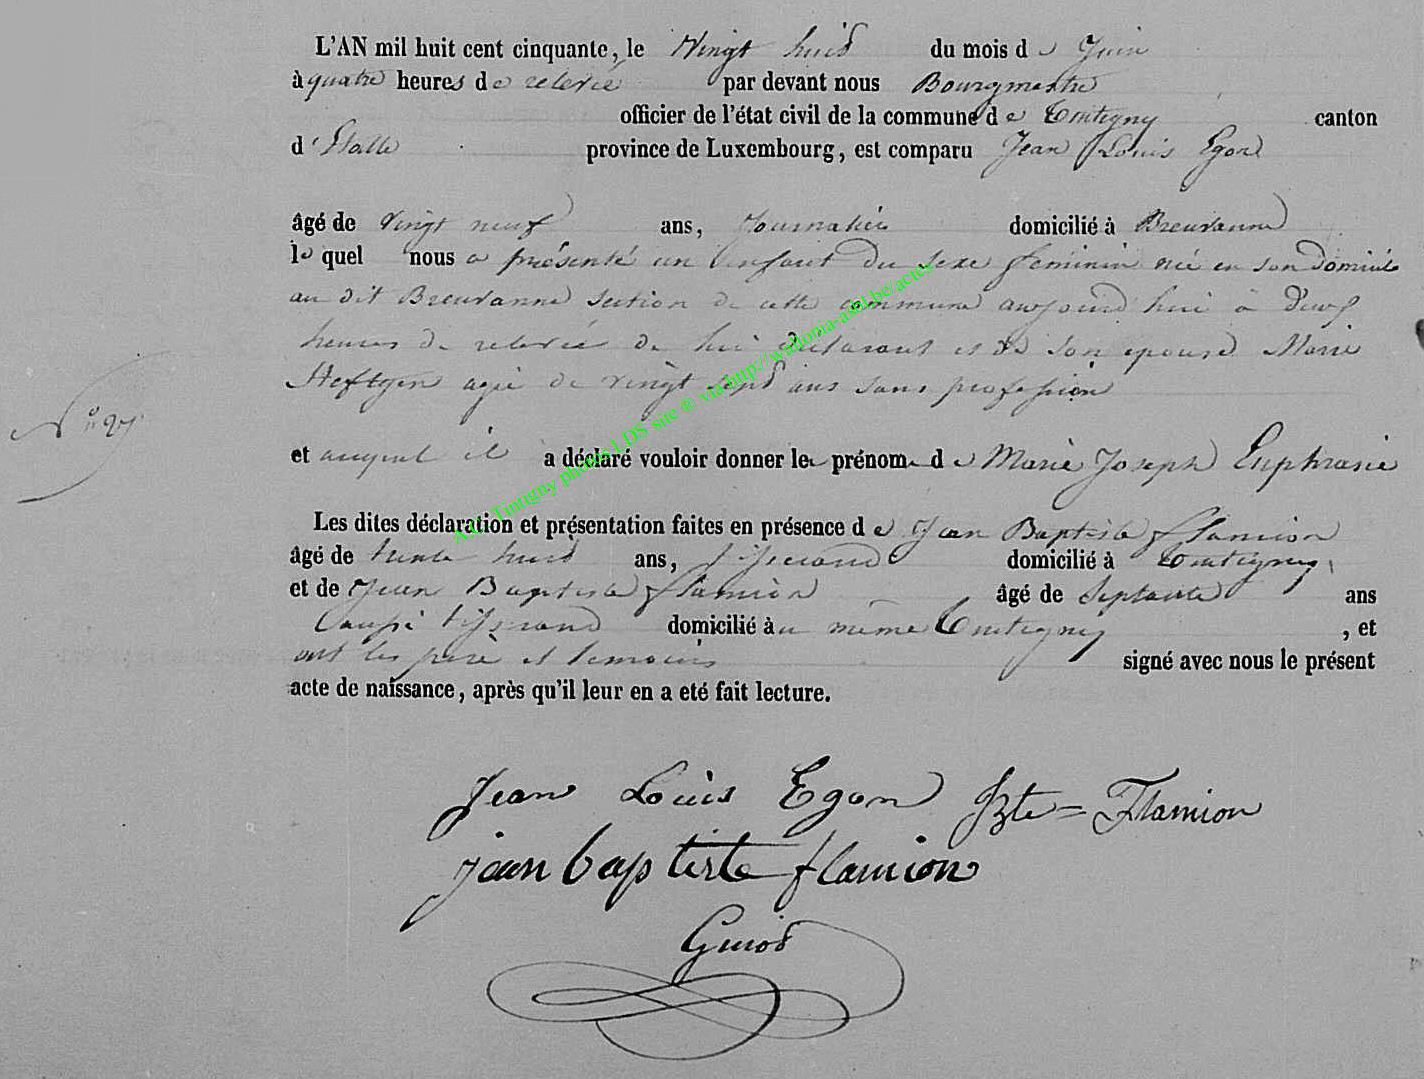 L'AN mil huit cent cinquante, le Vingt huit du mois de Juin
à quatre heures de relevée par devant nous Bourgmestre
officier de l'état civil de la commune de Tintigny canton
d'Etalle province de Luxembourg, est comparu Jean Louis Egon
âgé de vingt neuf ans, Journalier domicilié à Breuvanne
lequel nous a présenté un enfant du sexe féminin né en son domicile
au dit Breuvanne section de cette commune aujourd'hui à Deux
heures de relevée de lui déclarant et de son épouse Marie
Heftgen agée de vingt sept ans sans profession
N° 27
et auquel il a déclaré vouloir donner les prénoms de Marie Joseph Euphrasie
Les dites déclaration et présentation faites en présence de Jean Baptiste flamion
âgé de trente huit ans, tisserand domicilié à Tintigny,
et de Jean Baptiste flamion âgé de Septante ans
aussi tisserand domicilié au même Tintigny, et
ont les père et témoins signé avec nous le présent
acte de naissance, après qu'il leur en a eté fait lecture.
Jean Louis Egon Jbte= Flamion
jean baptiste flamion
Guiot
A.C. Tintigny photos LDS site @ via http://wallonia-asbl.be/actes